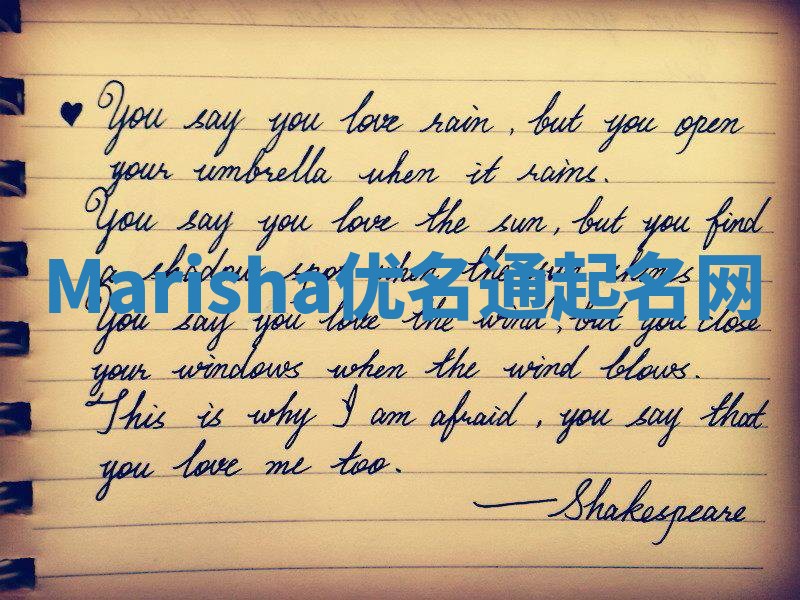 ♥ You say you love rain, but you open
your umbrella when it rains.
You say you love the sun, but you find
a shadow spot when the sun shines
Marisha优名通起名网
You say you love the wind, but you close
your windows when the wind blows.
This is why I am afraid, you say that
you love me too.
—Shakespeare